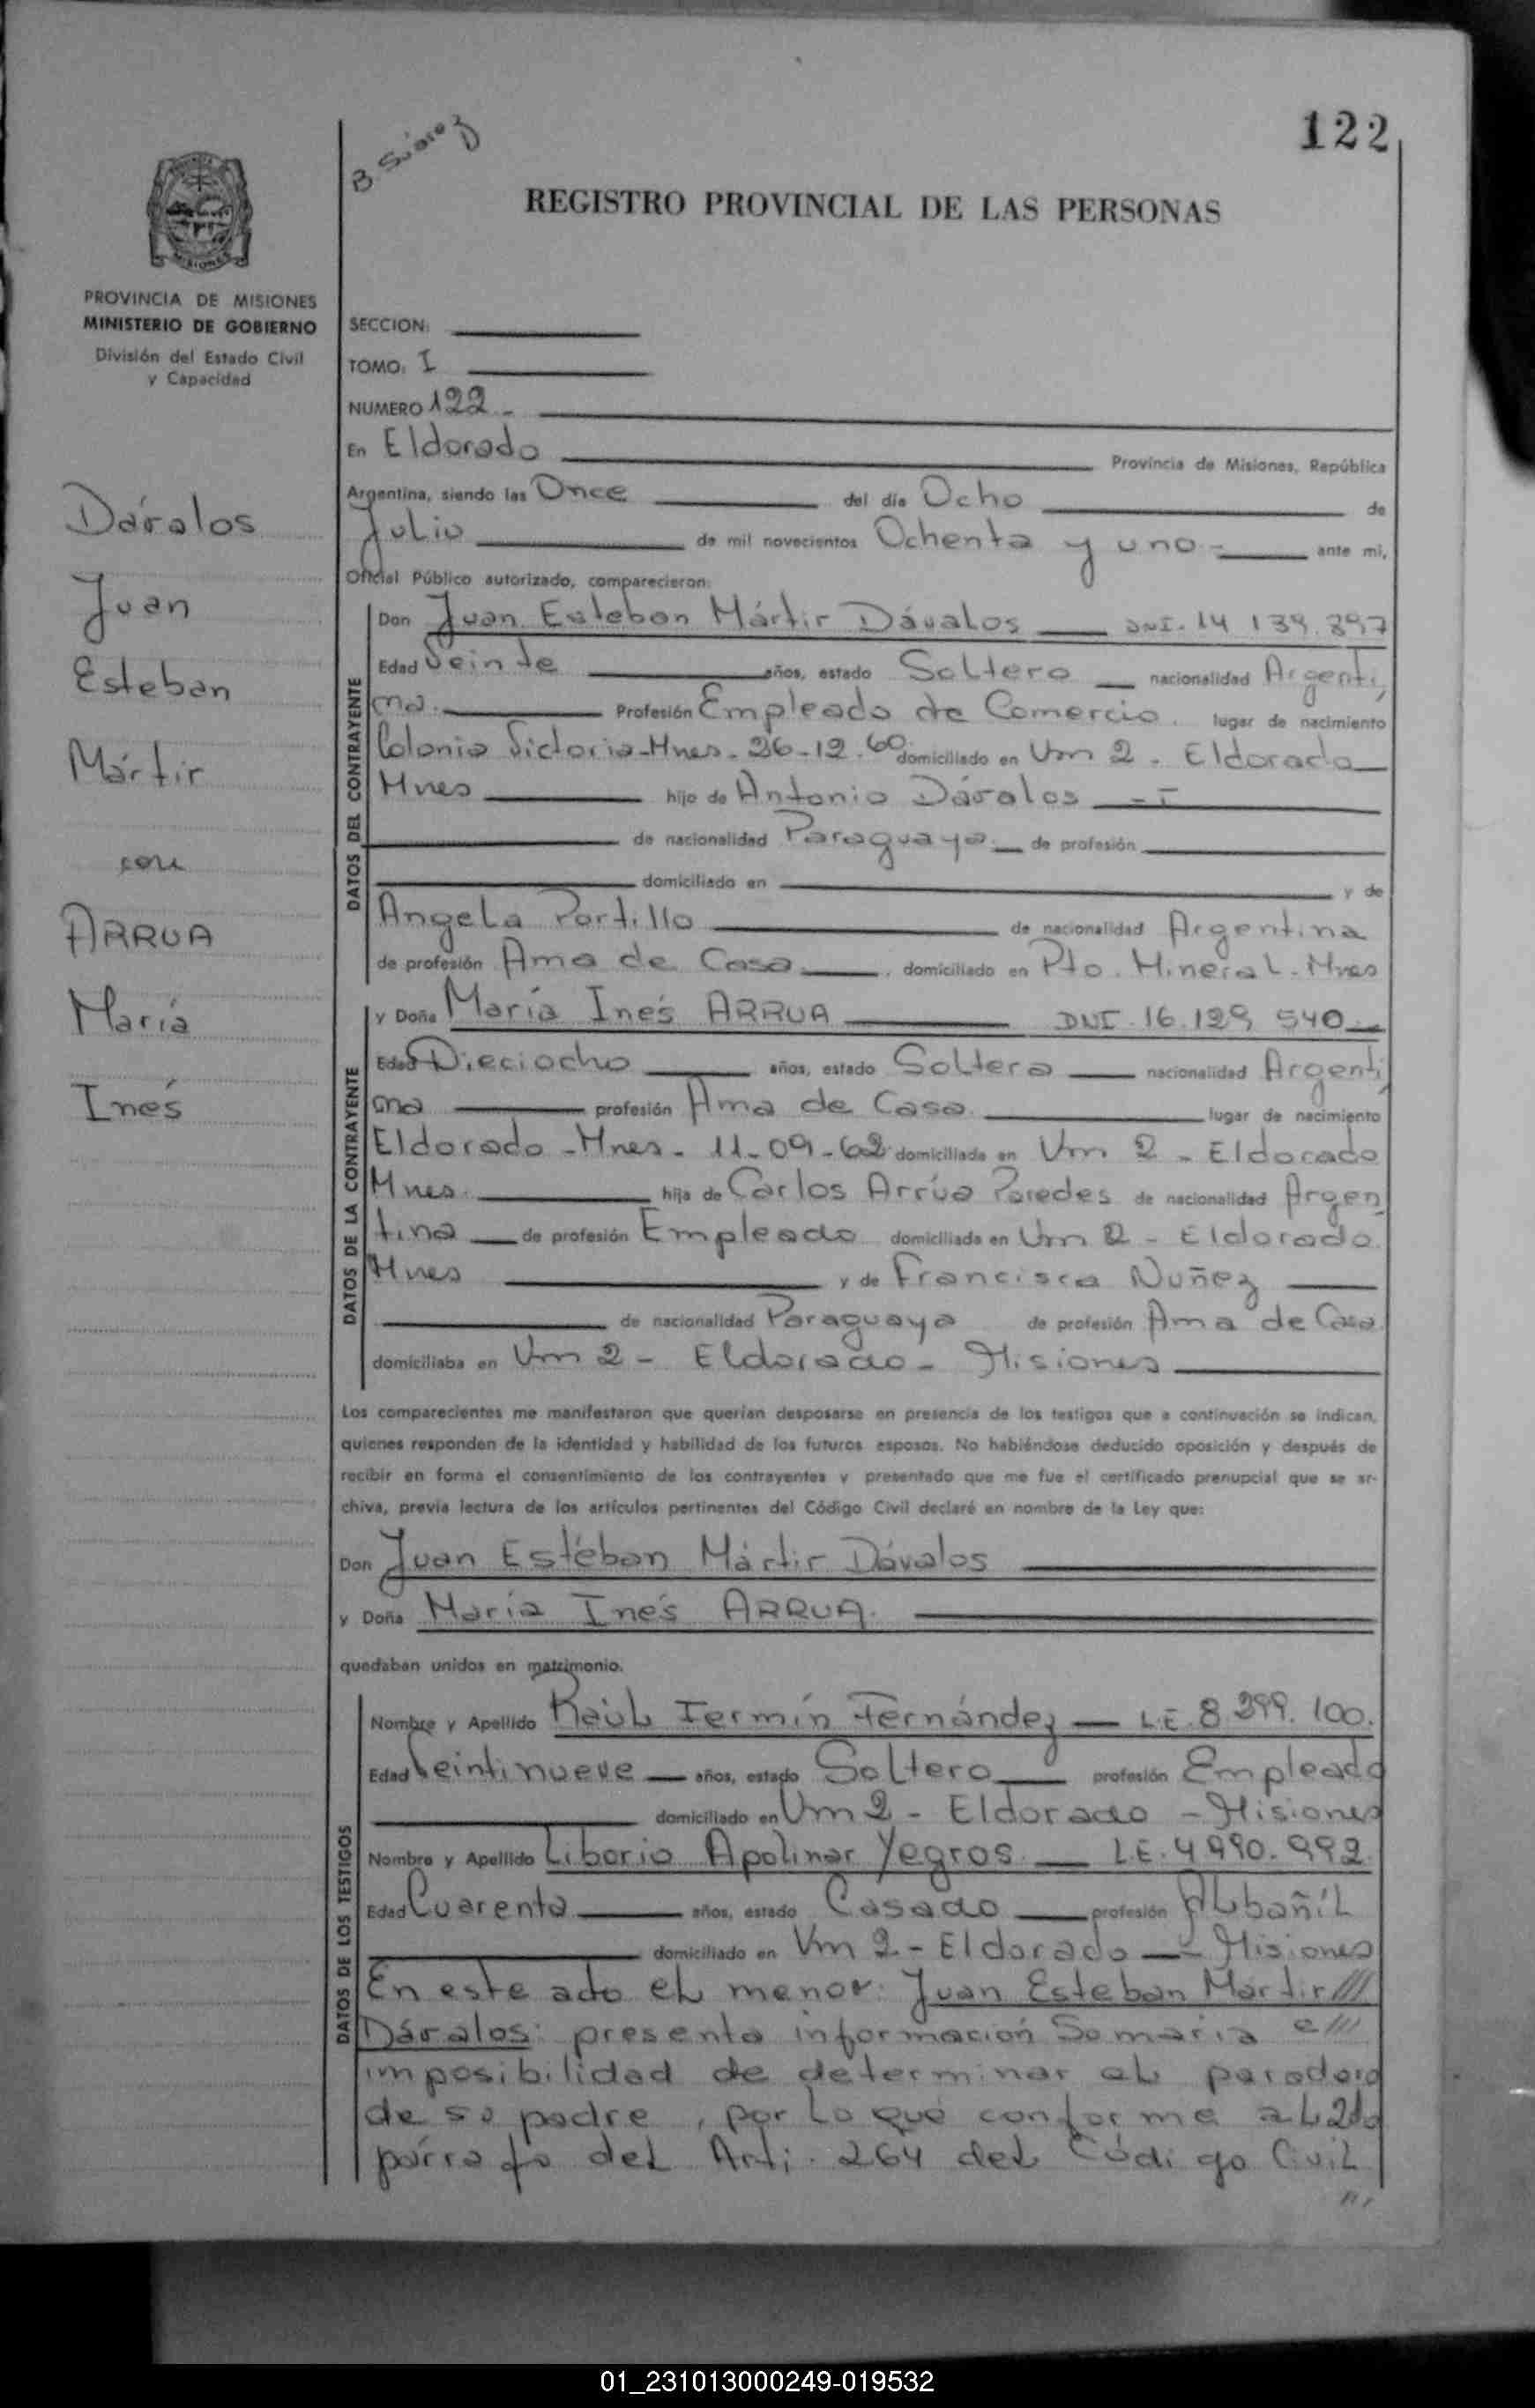 122
B Suárez
REGISTRO PROVINCIAL DE LAS PERSONAS
MISIONES
PROVINCIA DE MISIONES
MINISTERIO DE GOBIERNO
División del Estado Civil
y Capacidad
Dávalos
Juan
Esteban
Mártir
con
ARRUA
María
Inés
SECCION:
TOMO: I
NUMERO 122 -
En Eldorado Provincia de Misiones, República
Argentina, siendo las Once del día Ocho de
Julio de mil novecientos Ochenta y uno - ante mi,
Oficial Público autorizado, comparecieron:
DATOS DEL CONTRAYENTE
Don Juan Esteban Mártir Dávalos DNI. 14 139.897
Edad Veinte años, estado Soltero nacionalidad Argenti,
na. Profesión Empleado de Comercio. lugar de nacimiento
Colonia Victoria-Mnes. 26-12.60 domiciliado en Km 2. Eldorado
Mnes hijo de Antonio Dávalos
de nacionalidad Paraguaya. de profesión
domiciliado en y de
Angela Portillo de nacionalidad Argentina
de profesión Ama de Casa, domiciliado en Pto. Mineral. Mnes
DATOS DE LA CONTRAYENTE
y Doña María Inés ARRUA DNI. 16.129 540
Edad Dieciocho años, estado Soltera nacionalidad Argenti,
na profesión Ama de Casa. lugar de nacimiento
Eldorado -Mnes- 11-09-62 domiciliada en Km 2 - Eldorado
Mnes. hija de Carlos Arrúa Paredes de nacionalidad Argen,
tina de profesión Empleado domiciliado en Km 2 - Eldorado.
Mnes y de Francisca Nuñez
de nacionalidad Paraguaya de profesión Ama de Casa.
domiciliaba en Km 2 - Eldorado - Misiones
Los comparecientes me manifestaron que querían desposarse en presencia de los testigos que a continuación se indican,
quienes responden de la identidad y habilidad de los futuros esposos. No habiéndose deducido oposición y después de
recibir en forma el consentimiento de los contrayentes y presentado que me fue el certificado prenupcial que se ar-
chiva, previa lectura de los artículos pertinentes del Código Civil declaré en nombre de la Ley que:
Don Juan Estéban Mártir Dávalos
y Doña María Inés ARRUA.
quedaban unidos en matrimonio.
DATOS DE LOS TESTIGOS
Nombre y Apellido Raúl Fermín Fernández L.E. 8.299.100.
Edad Veintinueve años, estado Soltero profesión Empleado
domiciliado en Km 2 - Eldorado - Misiones
Nombre y Apellido Liborio Apolinar Yegros L.E. 4 990.992.
Edad Cuarenta años, estado Casado profesión Albañil
domiciliado en Km 2 - Eldorado - Misiones
En este acto el menor: Juan Esteban Mártir ///
Dávalos: presenta información Sumaria e///
imposibilidad de determinar el paradero
de su padre, por lo que conforme al 2do
párrafo del Arti. 264 del Código Civil
///
01_231013000249-019532